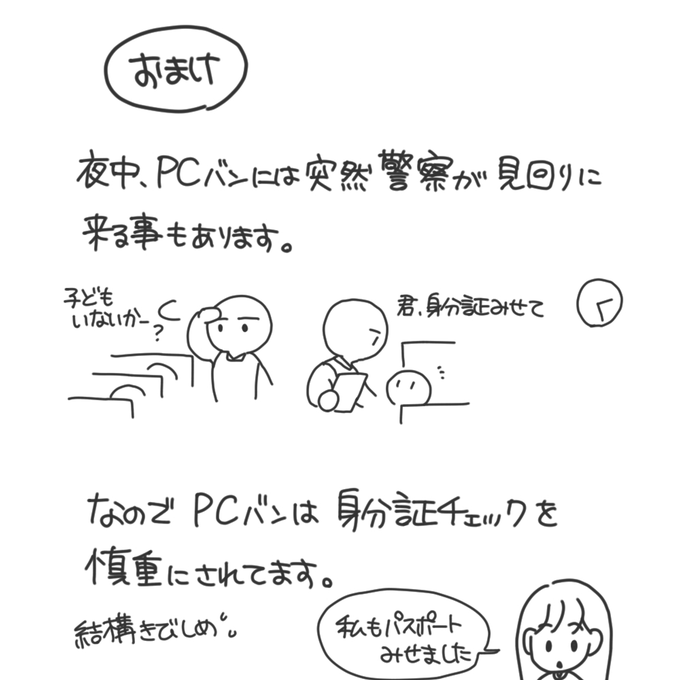 おまけ
夜中、PCバンには突然警察が見回りに
来る事もあります。
子ども
いないかー
?
君、身分証みせて
なのでPCバンは身分証チェックを
慎重にされてます。
結構きびしめ。
私もパスポート
みせました